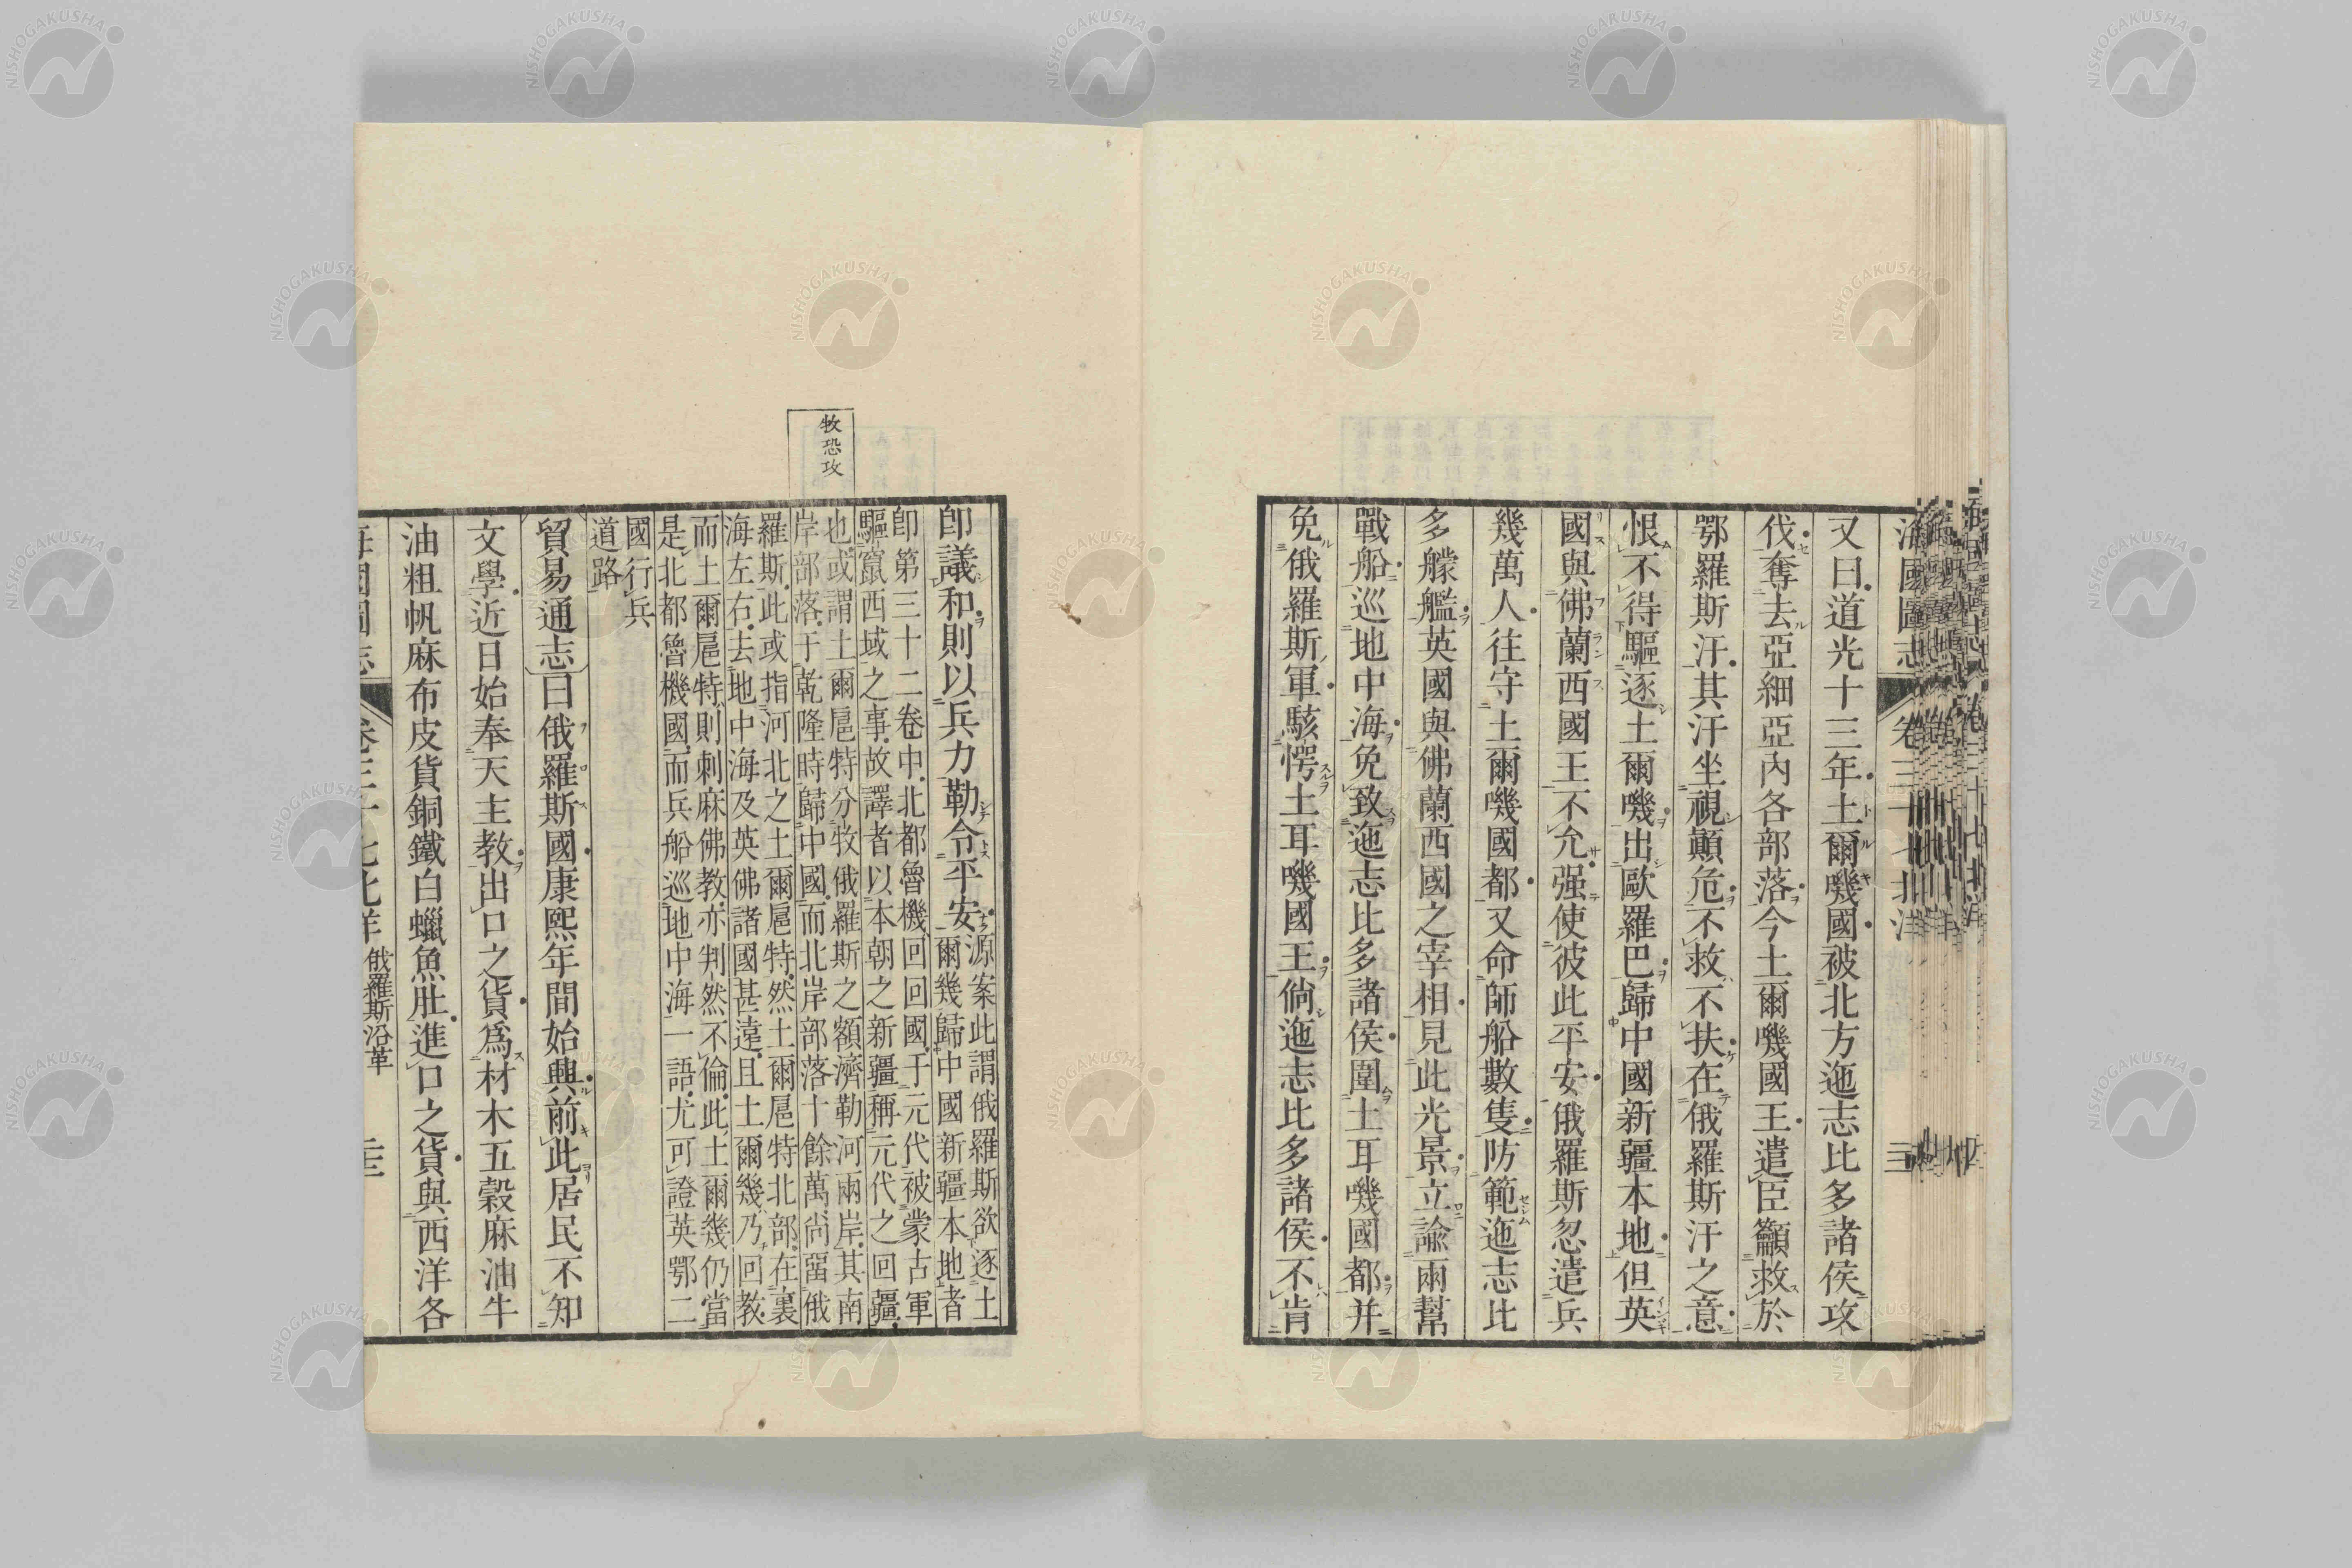 海國圖志 卷三十七 北洋 三
又曰道光十三年土爾嘰國被北方迤志比多諸侯攻
伐奪去亞細亞內各部落今土爾嘰國王遣臣籲救於
鄂羅斯汗其汗坐視顚危不救不扶在俄羅斯汗之意
恨不得驅逐土爾嘰出歐羅巴歸中國新疆本地但英
國與佛蘭西國王不允强使彼此平安俄羅斯忽遣兵
幾萬人往守土爾嘰國都又命師船數隻防範迤志比
多艨艦英國與佛蘭西國之宰相見此光景立諭兩幫
戰船巡地中海免致迤志比多諸侯圍土耳嘰國都并
免俄羅斯軍駭愕土耳嘰國王倘迤志比多諸侯不肯
卽議和則以兵力勒令平安源案此謂俄羅斯欲逐土
爾幾歸中國新疆本地者
卽第三十二卷中北都魯機回回國于元代被蒙古軍
驅竄西域之事故譯者以本朝之新疆稱元代之回疆
牧恐攻
也或謂土爾扈特分牧俄羅斯之額濟勒河兩岸其南
岸部落于乾隆時歸中國而北岸部落十餘萬尙畱俄
羅斯此或指河北之土爾扈特然土爾扈特北部在裏
海左右去地中海及英佛諸國甚遠且土爾幾乃回教
而土爾扈特則刺麻佛教亦判然不倫此土爾幾仍當
是北都魯機國而兵船巡地中海一語尤可證英鄂二
國行兵
道路
貿易通志曰俄羅斯國康熙年間始興前此居民不知
文學近日始奉天主教出口之貨爲材木五穀麻油牛
油粗帆麻布皮貨銅鐵白蠟魚肚進口之貨與西洋各
俄羅斯沿革
NISHOGAKUSHA